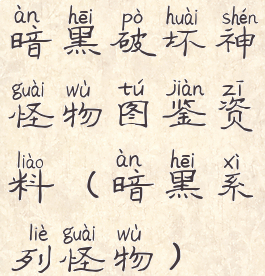 àn hēi pò huài shén
暗黑破坏神
guài wù tú jiàn zī
怪物图鉴资
liào àn hēi xì
料（暗黑系
liè guài wù
列怪物）